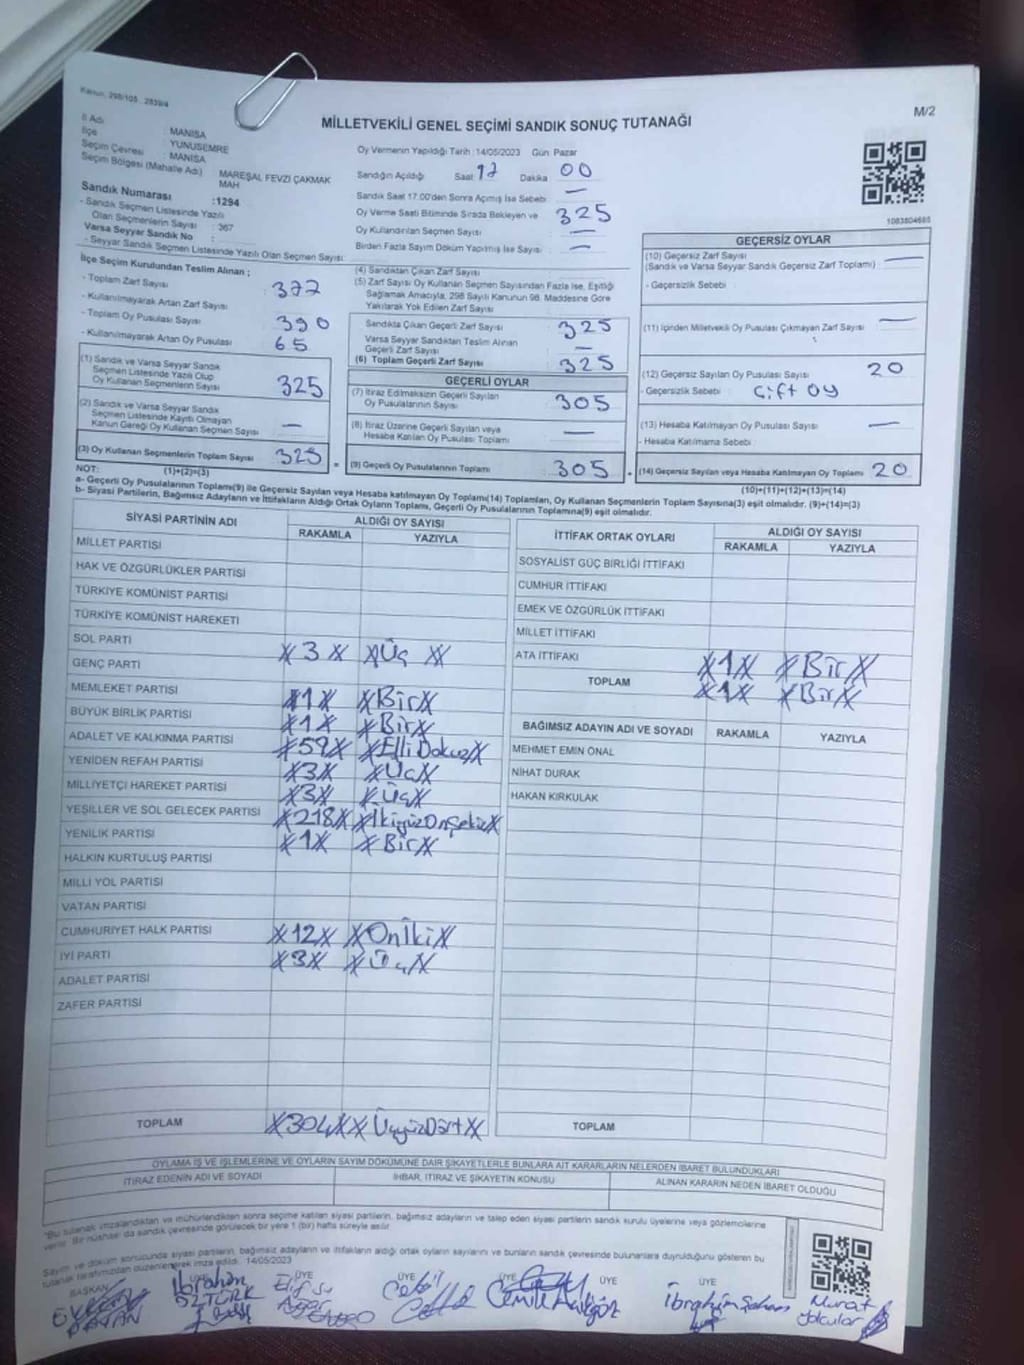 Kanun: 298/105 , 2839/4
M/2
MİLLETVEKİLİ GENEL SEÇİMİ SANDIK SONUÇ TUTANAĞI
İl Adı : MANİSA
İlçe : YUNUSEMRE
Seçim Çevresi : MANİSA
Seçim Bölgesi (Mahalle Adı) : MAREŞAL FEVZİ ÇAKMAK MAH
Sandık Numarası :1294
- Sandık Seçmen Listesinde Yazılı
Olan Seçmenlerin Sayısı : 367
Varsa Seyyar Sandık No :
- Seyyar Sandık Seçmen Listesinde Yazılı Olan Seçmen Sayısı:
Oy Vermenin Yapıldığı Tarih :14/05/2023 Gün: Pazar
Sandığın Açıldığı Saat 17 Dakika 00
Sandık Saat 17:00'den Sonra Açılmış İse Sebebi : —
Oy Verme Saati Bitiminde Sırada Bekleyen ve 325
Oy Kullandırılan Seçmen Sayısı : —
Birden Fazla Sayım Döküm Yapılmış İse Sayısı : —
1083804685
İlçe Seçim Kurulundan Teslim Alınan ;
- Toplam Zarf Sayısı : 372
- Kullanılmayarak Artan Zarf Sayısı :
- Toplam Oy Pusulası Sayısı : 390
- Kullanılmayarak Artan Oy Pusulası : 65
(1) Sandık ve Varsa Seyyar Sandık
Seçmen Listesinde Yazılı Olup
Oy Kullanan Seçmenlerin Sayısı : 325
(2) Sandık ve Varsa Seyyar Sandık
Seçmen Listesinde Kayıtlı Olmayan
Kanun Gereği Oy Kullanan Seçmen Sayısı : —
(3) Oy Kullanan Seçmenlerin Toplam Sayısı : 325
(1)+(2)=(3)
(4) Sandıktan Çıkan Zarf Sayısı :
(5) Zarf Sayısı Oy Kullanan Seçmen Sayısından Fazla İse, Eşitliği
Sağlamak Amacıyla, 298 Sayılı Kanunun 98. Maddesine Göre
Yakılarak Yok Edilen Zarf Sayısı :
Sandıkta Çıkan Geçerli Zarf Sayısı : 325
Varsa Seyyar Sandıktan Teslim Alınan
Geçerli Zarf Sayısı : —
(6) Toplam Geçerli Zarf Sayısı : 325
GEÇERLİ OYLAR
(7) İtiraz Edilmeksizin Geçerli Sayılan
Oy Pusulalarının Sayısı : 305
(8) İtiraz Üzerine Geçerli Sayılan veya
Hesaba Katılan Oy Pusulası Toplamı : —
= (9) Geçerli Oy Pusulalarının Toplamı : 305
GEÇERSİZ OYLAR
(10) Geçersiz Zarf Sayısı —
(Sandık ve Varsa Seyyar Sandık Geçersiz Zarf Toplamı) :
- Geçersizlik Sebebi :
(11) İçinden Milletvekili Oy Pusulası Çıkmayan Zarf Sayısı : —
(12) Geçersiz Sayılan Oy Pusulası Sayısı : 20
- Geçersizlik Sebebi : Çift oy
(13) Hesaba Katılmayan Oy Pusulası Sayısı : —
- Hesaba Katılmama Sebebi :
+ (14) Geçersiz Sayılan veya Hesaba Katılmayan Oy Toplamı : 20
(10)+(11)+(12)+(13)=(14)
NOT:
a- Geçerli Oy Pusulalarının Toplamı(9) ile Geçersiz Sayılan veya Hesaba katılmayan Oy Toplamı(14) Toplamları, Oy Kullanan Seçmenlerin Toplam Sayısına(3) eşit olmalıdır. (9)+(14)=(3)
b- Siyasi Partilerin, Bağımsız Adayların ve İttifakların Aldığı Ortak Oyların Toplamı, Geçerli Oy Pusulalarının Toplamına(9) eşit olmalıdır.
SİYASİ PARTİNİN ADI ALDIĞI OY SAYISI
RAKAMLA YAZIYLA
MİLLET PARTİSİ
HAK VE ÖZGÜRLÜKLER PARTİSİ
TÜRKİYE KOMÜNİST PARTİSİ
TÜRKİYE KOMÜNİST HAREKETİ
SOL PARTİ X3X XÜçXX
GENÇ PARTİ
MEMLEKET PARTİSİ X1X XBirX
BÜYÜK BİRLİK PARTİSİ X1X XBirX
ADALET VE KALKINMA PARTİSİ X59X XElliDokuzX
YENİDEN REFAH PARTİSİ X3X XÜçX
MİLLİYETÇİ HAREKET PARTİSİ X3X XÜçX
YEŞİLLER VE SOL GELECEK PARTİSİ X218X XİkiyüzOnSekizX
YENİLİK PARTİSİ X1X XBirX
HALKIN KURTULUŞ PARTİSİ
MİLLİ YOL PARTİSİ
VATAN PARTİSİ
CUMHURİYET HALK PARTİSİ X12X XOnİkiX
İYİ PARTİ X3X XÜçX
ADALET PARTİSİ
ZAFER PARTİSİ
TOPLAM X304XX XÜçyüzDörtXX
İTTİFAK ORTAK OYLARI ALDIĞI OY SAYISI
RAKAMLA YAZIYLA
SOSYALİST GÜÇ BİRLİĞİ İTTİFAKI
CUMHUR İTTİFAKI
EMEK VE ÖZGÜRLÜK İTTİFAKI
MİLLET İTTİFAKI
ATA İTTİFAKI X1X XBirX
TOPLAM X1X XBirX
BAĞIMSIZ ADAYIN ADI VE SOYADI RAKAMLA YAZIYLA
MEHMET EMİN ÖNAL
NİHAT DURAK
HAKAN KIRKULAK
TOPLAM
OYLAMA İŞ VE İŞLEMLERİNE VE OYLARIN SAYIM DÖKÜMÜNE DAİR ŞİKAYETLERLE BUNLARA AİT KARARLARIN NELERDEN İBARET BULUNDUKLARI
İTİRAZ EDENİN ADI VE SOYADI İHBAR, İTİRAZ VE ŞİKAYETİN KONUSU ALINAN KARARIN NEDEN İBARET OLDUĞU
"Bu tutanak imzalandıktan ve mühürlendikten sonra seçime katılan siyasi partilerin, bağımsız adayların ve talep eden siyasi partilerin sandık kurulu üyelerine veya gözlemcilerine
verilir. Bir nüshası da sandık çevresinde görülecek bir yere 1 (bir) hafta süreyle asılır.
Sayım ve döküm sonucunda siyasi partilerin, bağımsız adayların ve ittifakların aldığı ortak oyların sayılarını ve bunların sandık çevresinde bulunanlara duyrulduğunu gösteren bu
tutanak tarafımızdan düzenlenerek imza edildi. 14/05/2023
BAŞKAN ÜYE ÜYE ÜYE ÜYE ÜYE ÜYE
İbrahim ÖZTÜRK
Elif su
Cemile Akgöz
İbrahim Şahan
Murat Yolcular